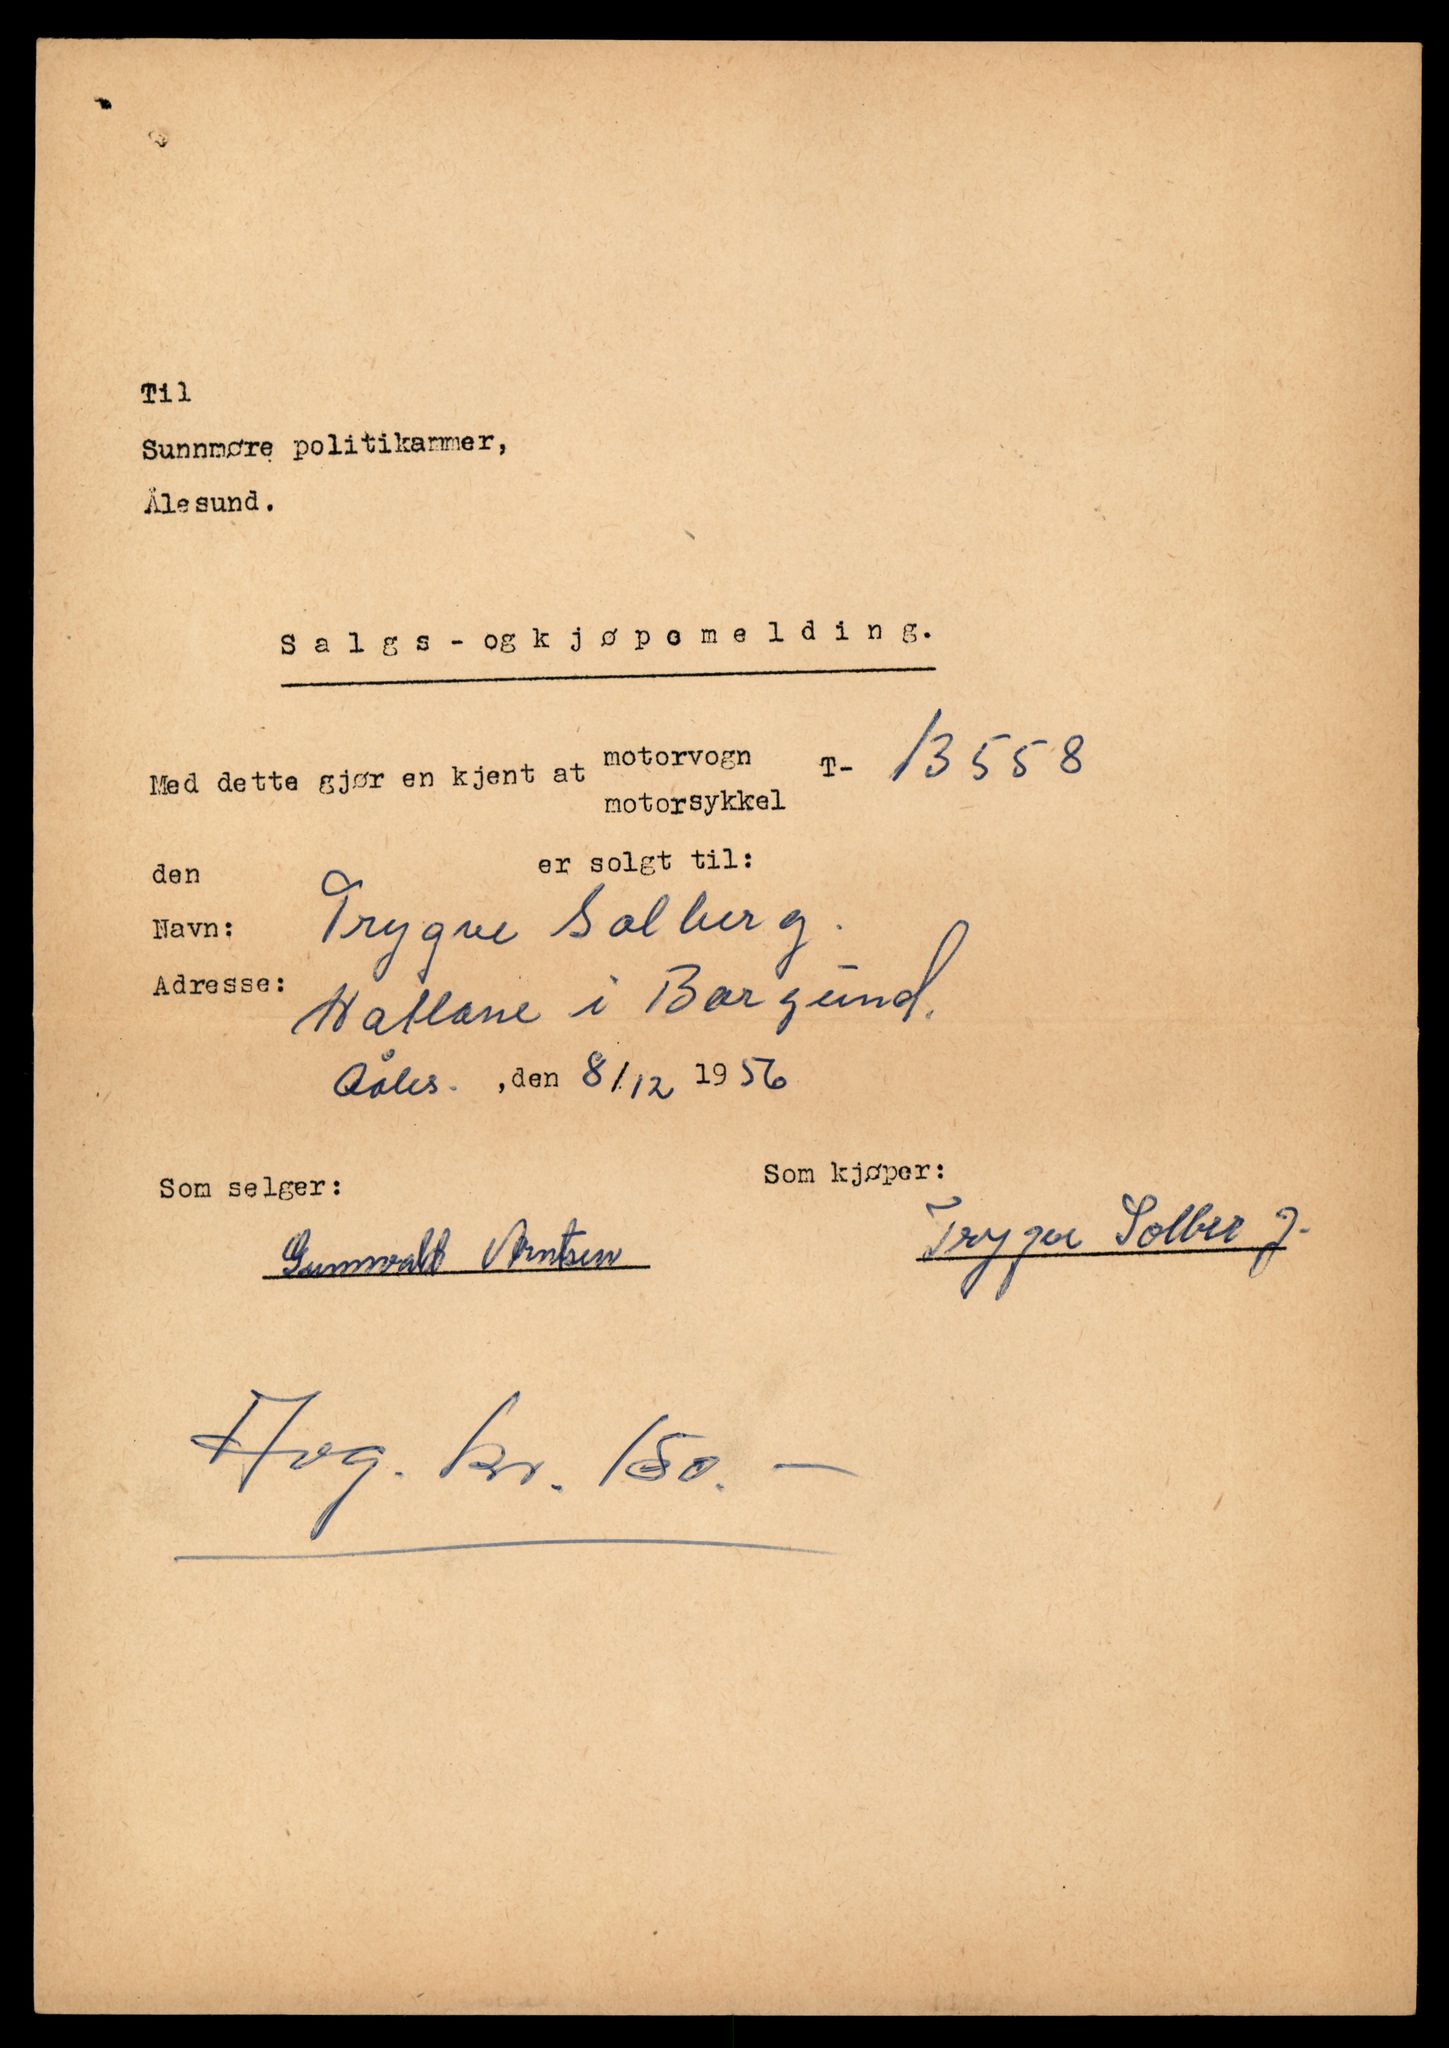 Til
Sunnmøre politikammer,
Ålesund.
Salgs-ogkjøpsmelding.
Med dette gjør en kjent at motorvogn T- 13558
motorsykkel
den er solgt til:
Navn: Trygve Solberg.
Adresse: Hatlane i Borgund.
Aales. ,den 8/12 1956
Som selger: Som kjøper:
Gunnvald Arntsen Trygve Solberg.
Avg. kr. 150. —